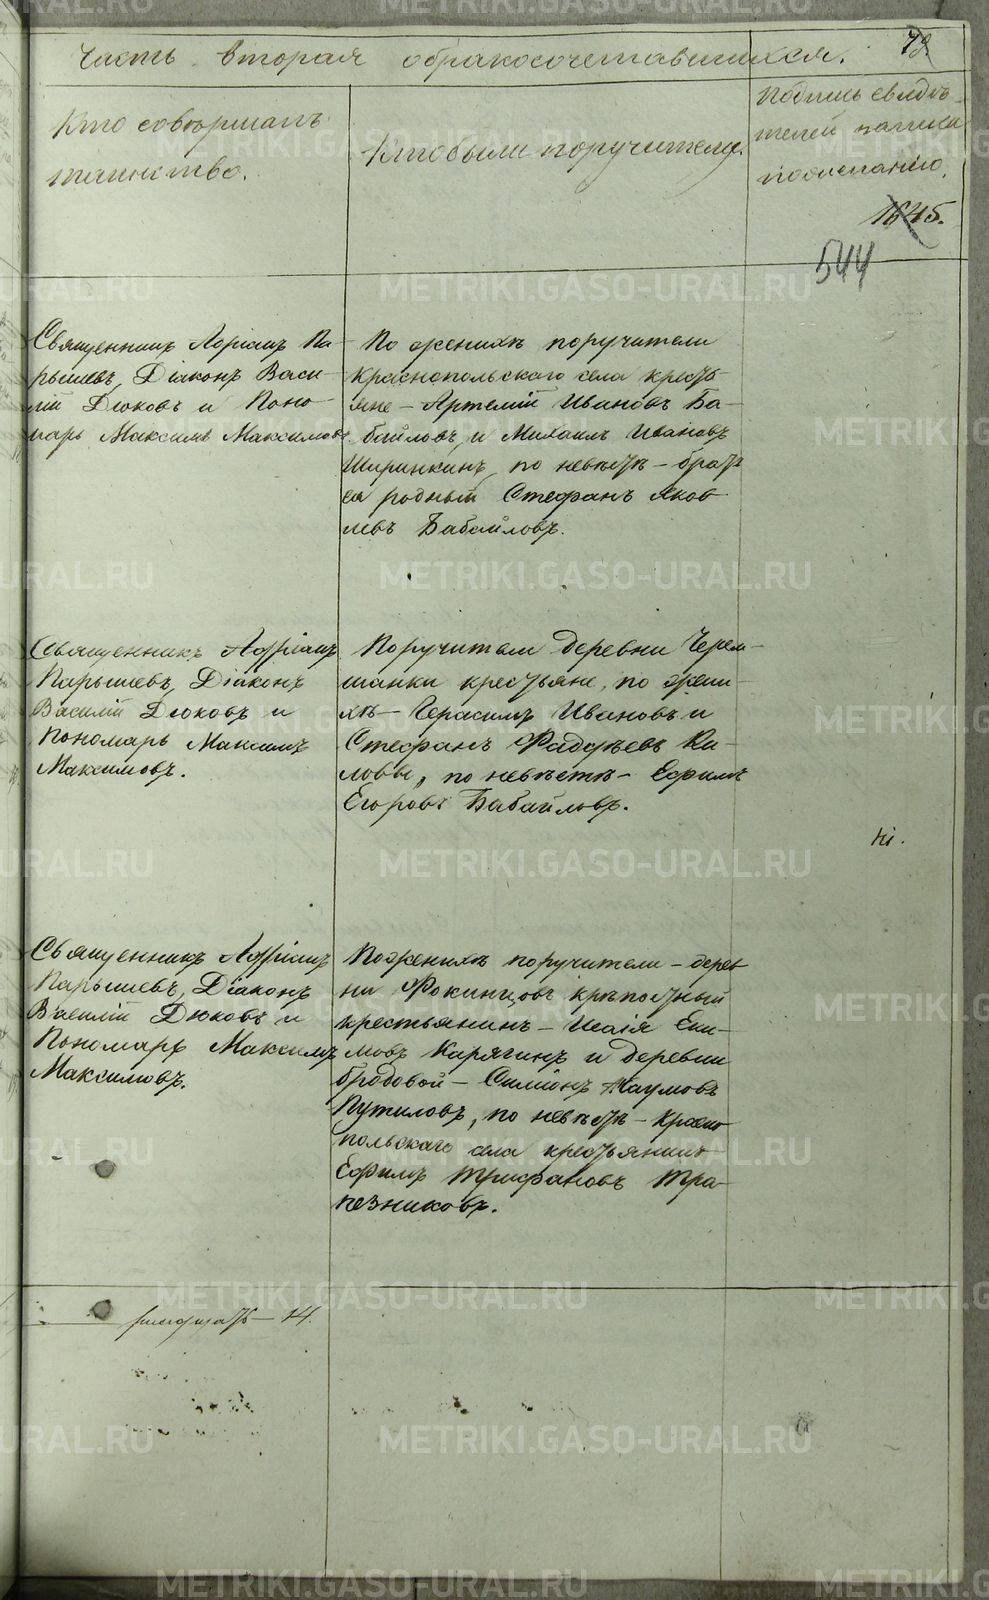 Часть вторая о бракосочетавшихся.
Кто совершалъ
таинство.
Кто были поручители.
Подпись свидѣ-
телей записи
по желанію.
1845.
544
Священникъ Адріанъ Па-
рышевъ, Діаконъ Васи-
лій Дюковъ и Поно-
марь Максимъ Максимовъ
По женихѣ поручители
Краснопольскаго села кресть
яне – Артемій Ивановъ Ба-
байловъ, и Михаилъ Ивановъ
Ширинкинъ, по невѣстѣ – братъ
ея родный Стефанъ Яков
левъ Бабайловъ.
Священникъ Адріанъ
Парышевъ, Діаконъ
Василій Дюковъ и
Пономарь Максимъ
Максимовъ.
Поручители деревни Черем-
шанки крестьяне, по жени-
хѣ – Герасимъ Ивановъ и
Стефанъ Фадѣевъ Ки-
ловы, по невѣстѣ – Ефимъ
Егоровъ Бабайловъ.
Священникъ Адріанъ
Парышевъ, Діаконъ
Василій Дюковъ и
Пономарь Максимъ
Максимовъ.
По женихѣ поручители – дерев
ни Фокинцовъ крѣпостный
крестьянинъ – Исаія Еки-
мовъ Карягинъ и деревни
Бродовой – Симіонъ Наумовъ
Путиловъ, по невѣстѣ – Красно
польскаго села крестьянинъ
Ефимъ Трифановъ Тра-
пезниковъ.
METRIKI.GASO-URAL.RU